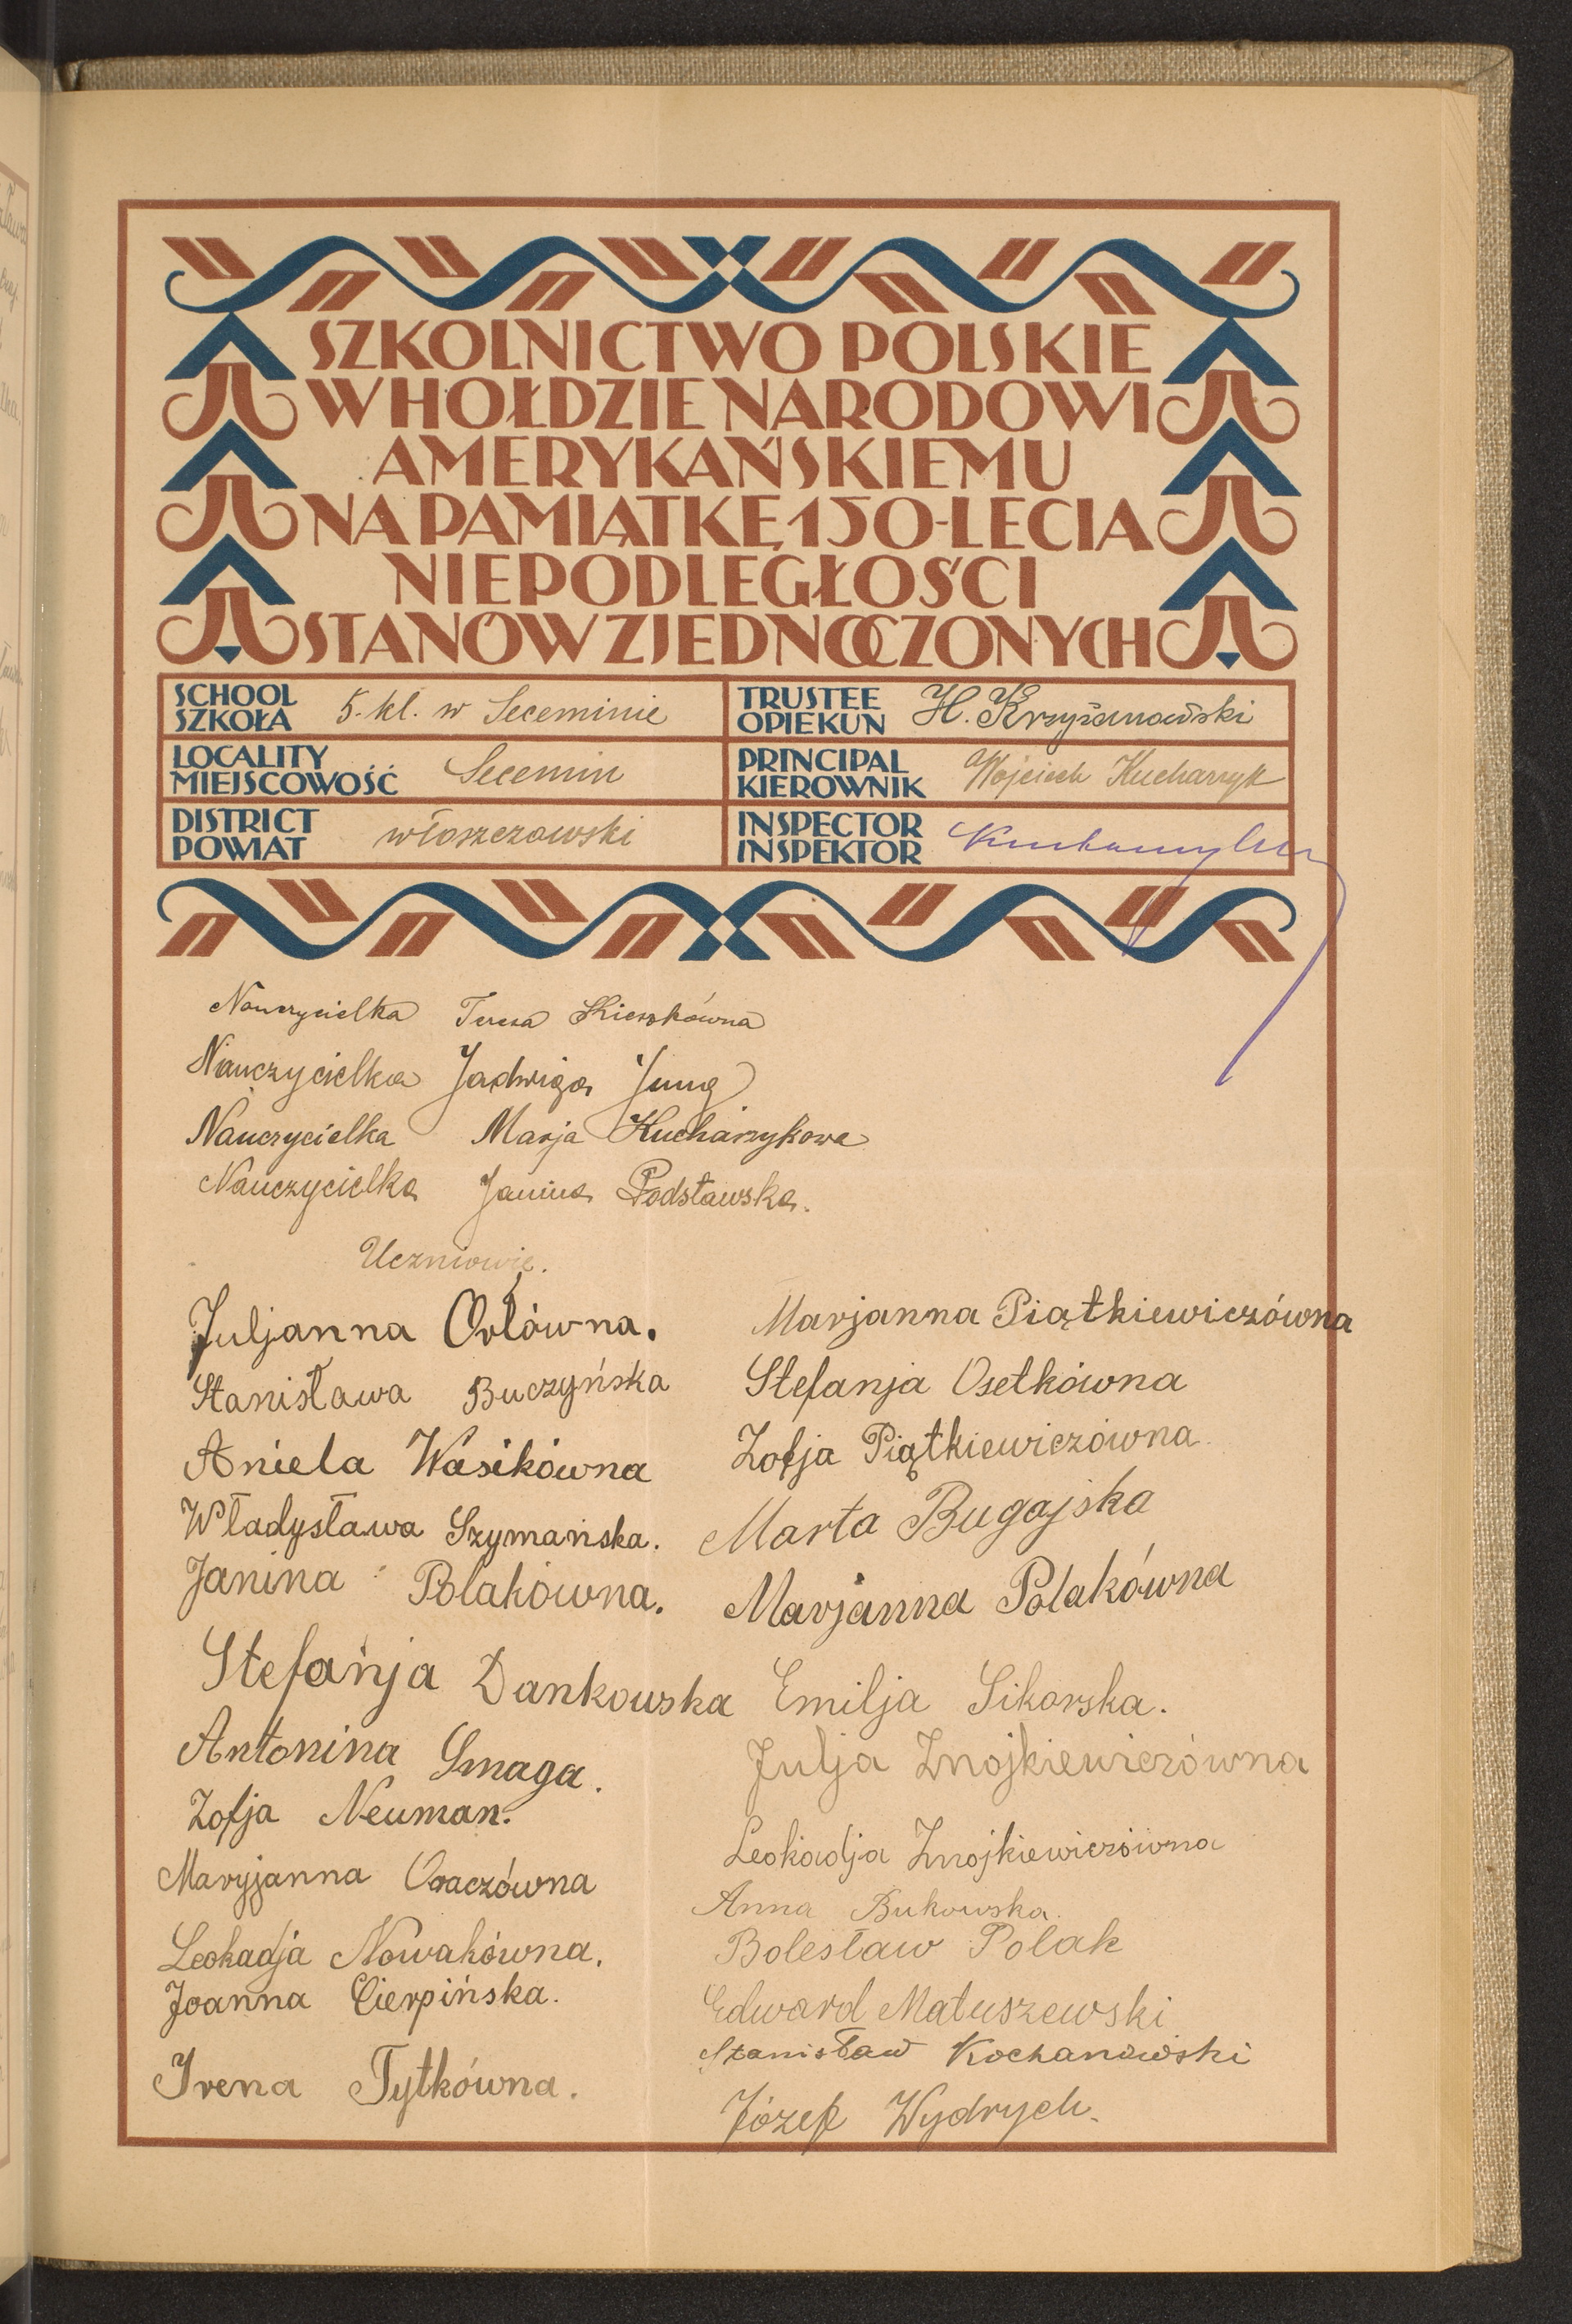 SZKOLNICTWO POLSKIE
W HOŁDZIE NARODOWI
AMERYKAŃSKIEMU
NA PAMIĄTKĘ 150-LECIA
NIEPODLEGŁOŚCI
STANÓW ZJEDNOCZONYCH
SCHOOL
SZKOŁA
5. kl. w Seceminie
TRUSTEE
OPIEKUN
H. Krzyżanowski
LOCALITY
MIEJSCOWOŚĆ
Secemin
PRINCIPAL
KIEROWNIK
Wojciech Kucharzyk
DISTRICT
POWIAT
włoszczowski
INSPECTOR
INSPEKTOR
Nauczycielka Teresa Kieszkówna
Nauczycielka Jadwiga Jung
Nauczycielka Marja Kucharzykowa
Nauczycielka Janina Podstawska.
Uczniowie.
Juljanna Orłówna.
Stanisława Buczyńska
Aniela Wasikówna
Władysława Szymańska.
Janina Polakówna.
Stefanja Dankowska
Antonina Smaga.
Zofja Neuman.
Maryjanna Oraczówna
Leokadja Nowakówna.
Joanna Cierpińska.
Irena Tytkówna.
Marjanna Piątkiewiczówna
Stefanja Osetkówna
Zofja Piątkiewiczówna.
Marta Bugajska
Marjanna Polakówna
Emilja Sikorska.
Julja Znojkiewiczówna
Leokadja Znojkiewiczówna
Anna Bukowska.
Bolesław Polak
Edward Matuszewski
Stanisław Kochanowski
Józef Wydrych.